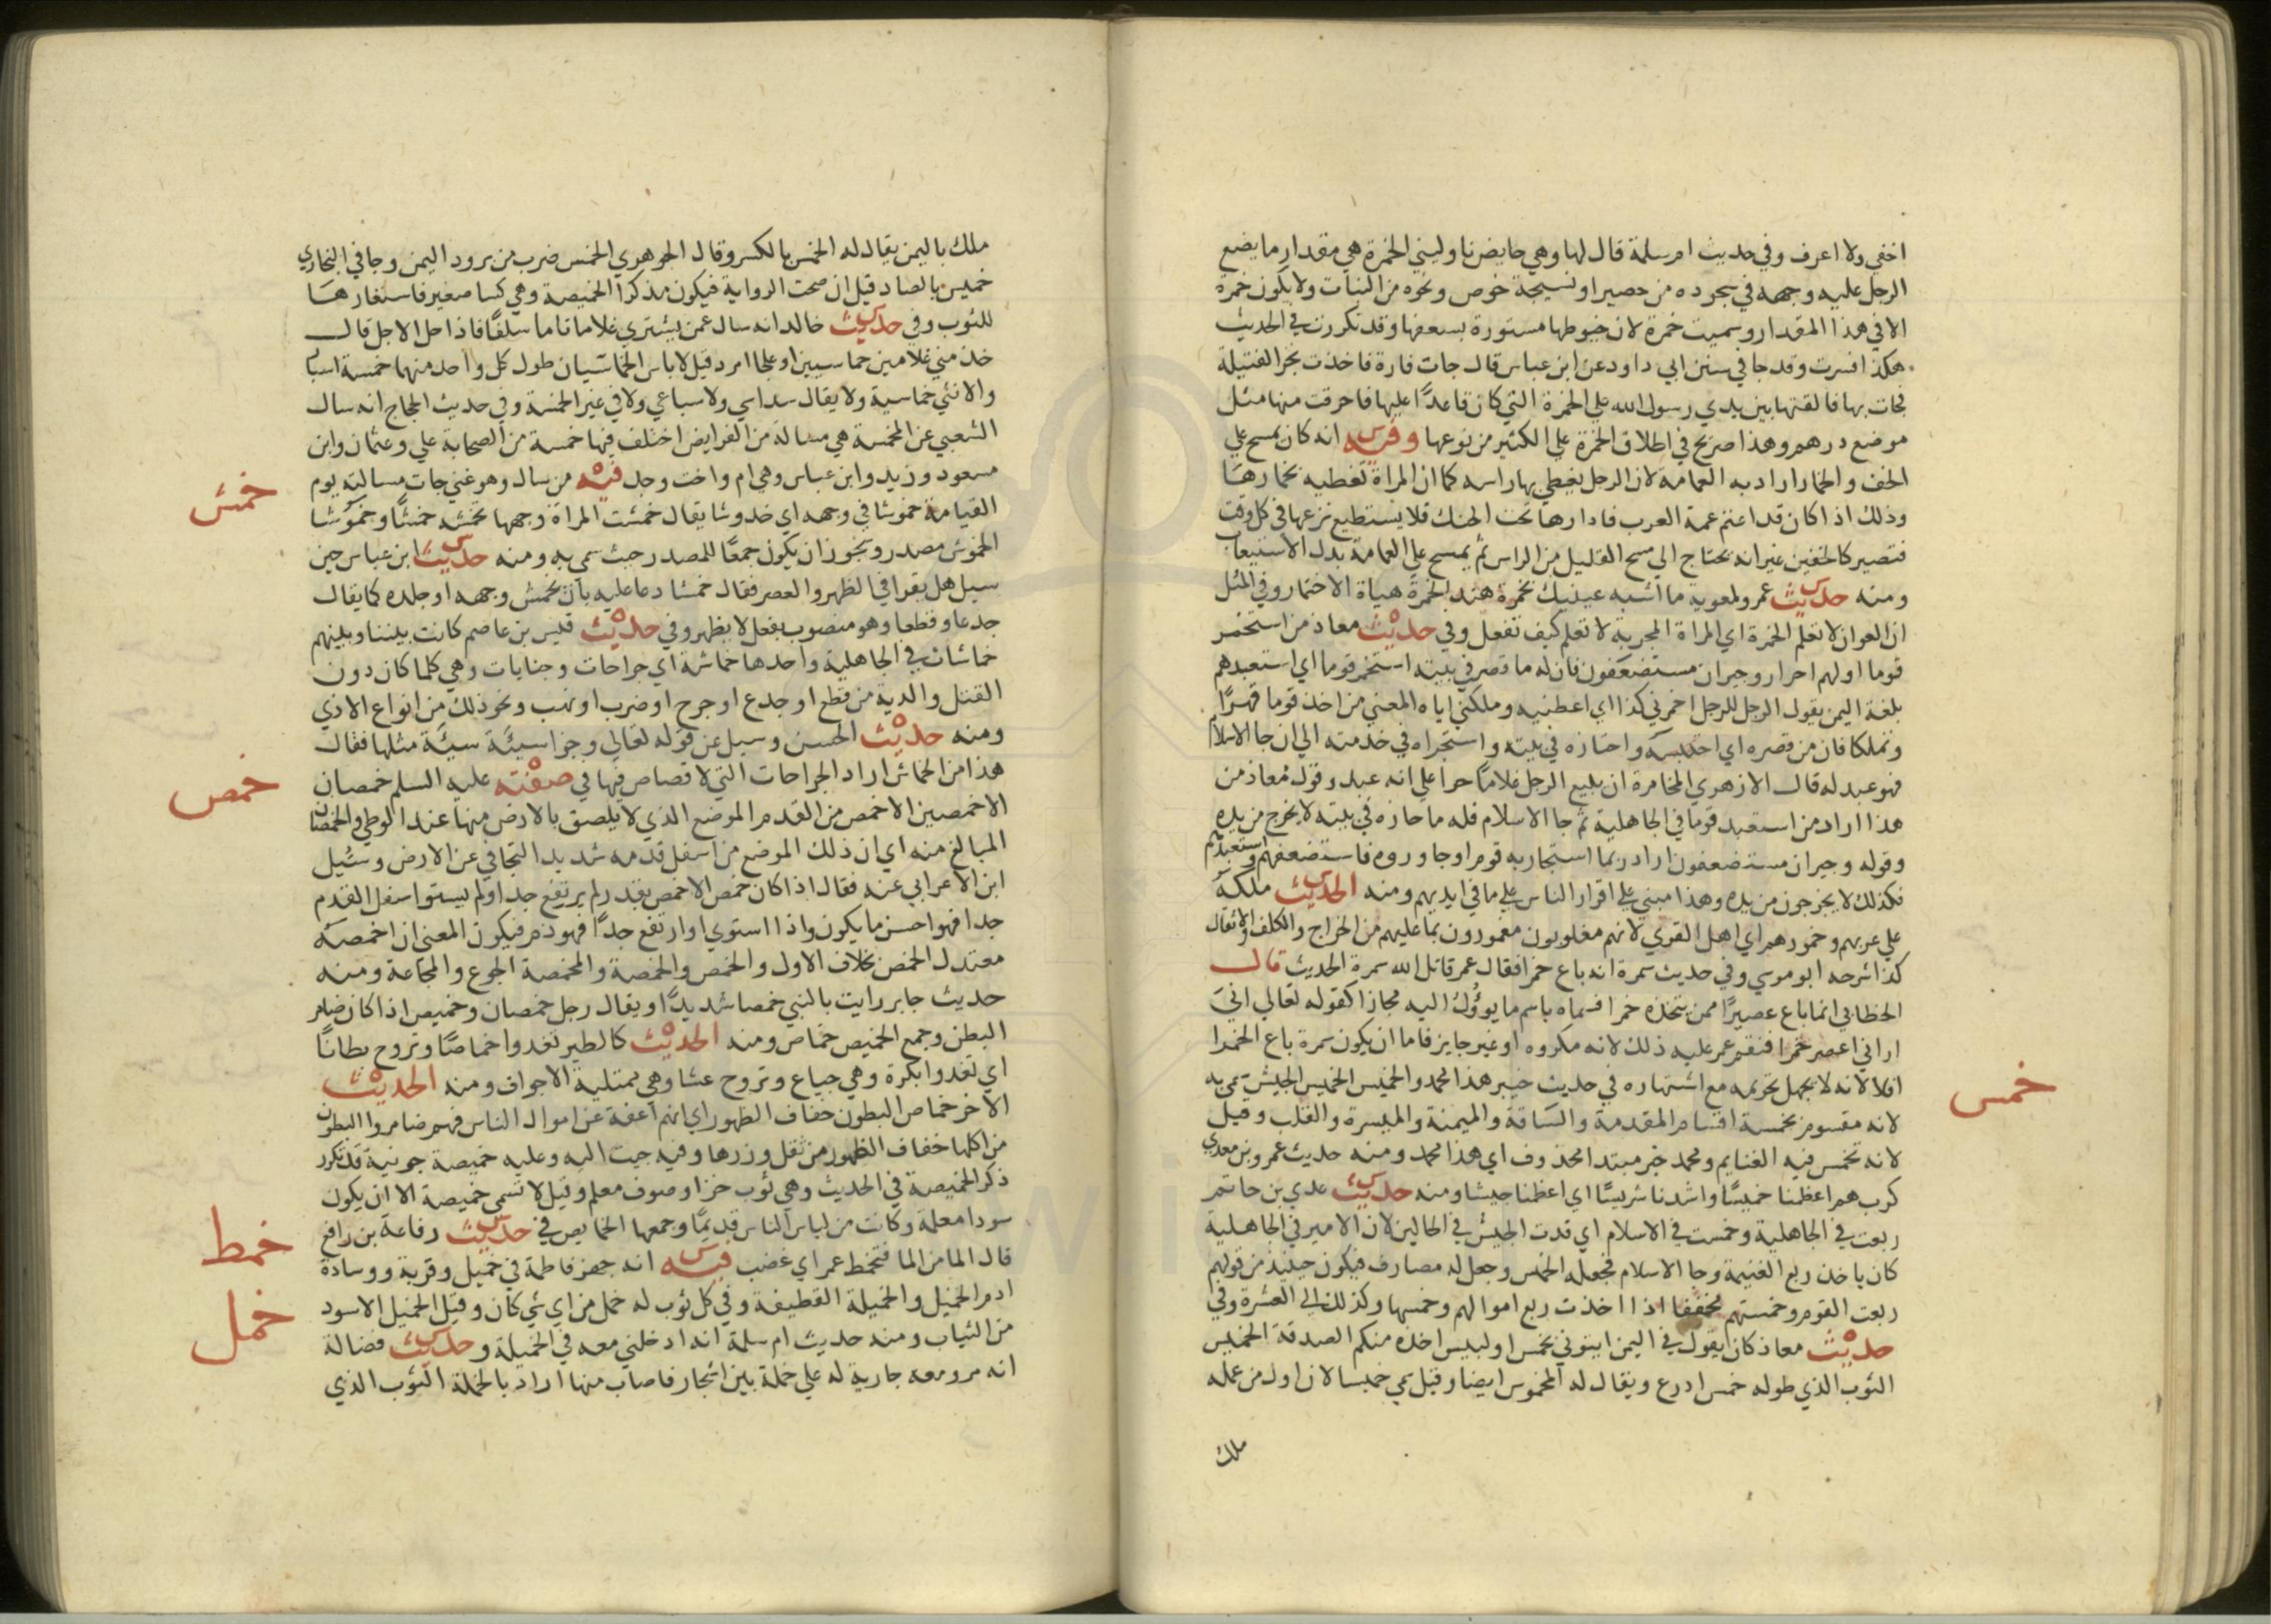 اخفي ولا اعرف وفي حديث ام سلمة قال لها وهي حايض ناوليني الخمرة هي مقدار ما يضع
الرجل عليه وجهه في سجوده من حصير او نسيجة خوص ونحوه من النبات ولا يكون خمرة
الا في هذا المقدار وسميت خمرة لان خيوطها مستورة بسعفها وقد تكررت في الحديث
هكذا فسرت وقد جا في سنن ابي داود عن ابن عباس قال جات فارة فاخذت بجر الفتيلة
فجات بها فالقتها بين يدي رسول الله علي الخمرة التي كان قاعدًا عليها فاحرقت منها مثل
موضع درهم وهذا صريح في اطلاق الخمرة علي الكثير من نوعها وفيه س انه كان يمسح علي
الخف والخمار اراد به العمامة لان الرجل يغطي بها راسه كما ان المراة تغطيه بخمارها
وذلك اذا كان قد اعتم عمة العرب فادارها تحت الحنك فلا يستطيع نزعها في كل وقت
فتصير كالخفين غير انه يحتاج الي مسح القليل من الراس ثم يمسح علي العمامة بدل الاستيعاب
ومنه حديث س عمرو لمعوية ما اشبه عينيك بخمرة هند الخمرة هياة الاختمار وفي المثل
ان العوان لا تعلم الخمرة اي المراة المجربة لا تعلم كيف تفعل وفي حديث ه معاذ من استخمر
قوما اولهم احرار وجيران مستضعفون فان له ما قصر في بيته استخمر قوما اي استعبدهم
بلغة اليمن يقول الرجل للرجل اخمرني كذا اي اعطنيه وملكني اياه المعني من اخذ قوما قهرًا
وتملكا فان من قصره اي احتبسه واحتازه في بيته واستجراه في خدمته الي ان جا الاسلام
فهو عبد له قال الازهري المخامرة ان يبيع الرجل غلامًا حرا علي انه عبد وقول معاذ من
هذا اراد من استعبد قوما في الجاهلية ثم جا الاسلام فله ما حازه في بيته لا يخرج من يده
وقوله وجيران مستضعفون اراد ربما استجار به قوم او جاوروه فاستضعفهم واستعبدهم
فكذلك لا يخرجون من يده وهذا مبني علي اقرار الناس علي ما في ايديهم ومنه الحديث س ملكه
علي عربهم وخمورهم اي اهل القري لانهم مغلوبون مغمورون بما عليهم من الخراج والكلف والاثقال
كذا شرحه ابو موسي وفي حديث سمرة انه باع خمرا فقال عمر قاتل الله سمرة الحديث قال
الخطابي انما باع عصيرًا ممن يتخذه خمرا فسماه باسم ما يوؤل اليه مجازا كقوله تعالي اني
اراني اعصر خمرا فنقم عمر عليه ذلك لانه مكروه او غير جايز فاما ان يكون سمرة باع الخمرا
فلا لانه لا يجهل تحريمه مع اشتهاره في حديث خيبر هذا محمد والخميس الخميس الجيش سمي به
خمس
لانه مقسوم بخمسة اقسام المقدمة والساقة والميمنة والميسرة والقلب وقيل
لانه تخمس فيه الغنايم ومحمد خبر مبتدا محذوف اي هذا محمد ومنه حديث عمرو بن معدي
كرب هم اعظمنا خميسًا واشدنا شريسًا اي اعظمنا جيشا ومنه حديث س عدي بن حاتم
ربعت في الجاهلية وخمست في الاسلام اي قدت الجيش في الحالين لان الامير في الجاهلية
كان ياخذ ربع الغنيمة وجا الاسلام فجعله الخمس وجعل له مصارف فيكون حينيذ من قولهم
ربعت القوم وخمستهم مخففا اذا اخذت ربع اموالهم وخمسها وكذلك الي العشرة وفي
حديث ه معاذ كان يقول في اليمن ايتوني بخميس او لبيس اخذه منكم الصدقة الخميس
الثوب الذي طوله خمس ادرع ويقال له المخموس ايضا وقيل سمي خميسا لان اول من عمله
ملك
ملك باليمن يقال له الخمس بالكسر وقال الجوهري الخمس ضرب من برود اليمن وجا في البخاري
خميص بالصاد قيل ان صحت الرواية فيكون مذكرا الخميصة وهي كسا صغير فاستعارها
للثوب وفي حديث س خالد انه سال عمن يشتري غلاما تاما سلفًا فاذا حل الاجل قال
خذ مني غلامين خماسيين او علجا امرد قيل لا باس الخماسيان طول كل واحد منهما خمسة اشبار
والانثي خماسية ولا يقال سداسي ولا سباعي ولا في غير الخمسة وفي حديث الحجاج انه سال
الشعبي عن المخمسة هي مسالة من الفرايض اختلف فيها خمسة من الصحابة علي وعثمان وابن
مسعود وزيد وابن عباس وهي ام واخت وجد فيه ه من سال وهو غني جات مسالته يوم
خمش
القيامة خموشا في وجهه اي خدوشا يقال خمشت المراة وجهها تخمشه خمشًا وخموشا
الخموش مصدر ويجوز ان يكون جمعًا للمصدر حيث سمي به ومنه حديث س ابن عباس حين
سيل هل يقرا في الظهر والعصر فقال خمشا دعا عليه بان يخمش وجهه او جلده كما يقال
جدعا وقطعا وهو منصوب بفعل لا يظهر وفي حديث ه قيس بن عاصم كانت بيننا وبينهم
خماشات في الجاهلية واحدها خماشة اي جراحات وجنايات وهي كلما كان دون
القتل والدية من قطع او جدع او جرح او ضرب او نهب ونحو ذلك من انواع الاذي
ومنه حديث ه الحسن وسيل عن قوله تعالي وجزا سيئة سيئة مثلها فقال
هذا من الخماش اراد الجراحات التي لا قصاص فيها في صفته ه عليه السلم خمصان
خمص
الاخمصين الاخمص من القدم الموضع الذي لا يلصق بالارض منها عند الوطي والخمصان
المبالغ منه اي ان ذلك الموضع من اسفل قدمه شديد التجافي عن الارض وسئيل
ابن الاعرابي عنه فقال اذا كان خمص الاخمص بقدر لم يرتفع جدا ولم يستو اسفل القدم
جدا فهو احسن ما يكون واذا استوي او ارتفع جدًا فهو ذم فيكون المعني ان اخمصه
معتدل الخمص بخلاف الاول والخمص والخمصة والمخمصة الجوع والمجاعة ومنه
حديث جابر رايت بالنبي خمصا شديدًا ويقال رجل خمصان وخميص اذا كان ضامر
البطن وجمع الخميص خماص ومنه الحديث ه كالطير تغدوا خماصًا وتروح بطانًا
اي تغدوا بكرة وهي جياع وتروح عشا وهي ممتلية الاجواف ومنه الحديث ه
الاخر خماص البطون خفاف الظهور اي انهم اعفة عن اموال الناس فهم ضامروا البطون
من اكلها خفاف الظهور من ثقل وزرها وفيه جيت اليه وعليه خميصة جونية قد تكرر
ذكر الخميصة في الحديث وهي ثوب خز او صوف معلم وقيل لا تسمي خميصة الا ان يكون
سودا معلمة وكانت من لباس الناس قديمًا وجمعها الخمايص في حديث س رفاعة بن رافع
خمط
قال الما من الما فتخمط عمر اي غضب فيه س انه جهز فاطمة في خميل وقربة ووسادة
خمل
ادم الخميل والخميلة القطيفة وفي كل ثوب له خمل من اي شي كان وقيل الخميل الاسود
من الثياب ومنه حديث ام سلمة انه ادخلني معه في الخميلة وحديث س فضالة
انه مر ومعه جارية له علي خملة بين اشجار فاصاب منها اراد بالخملة الثوب الذي